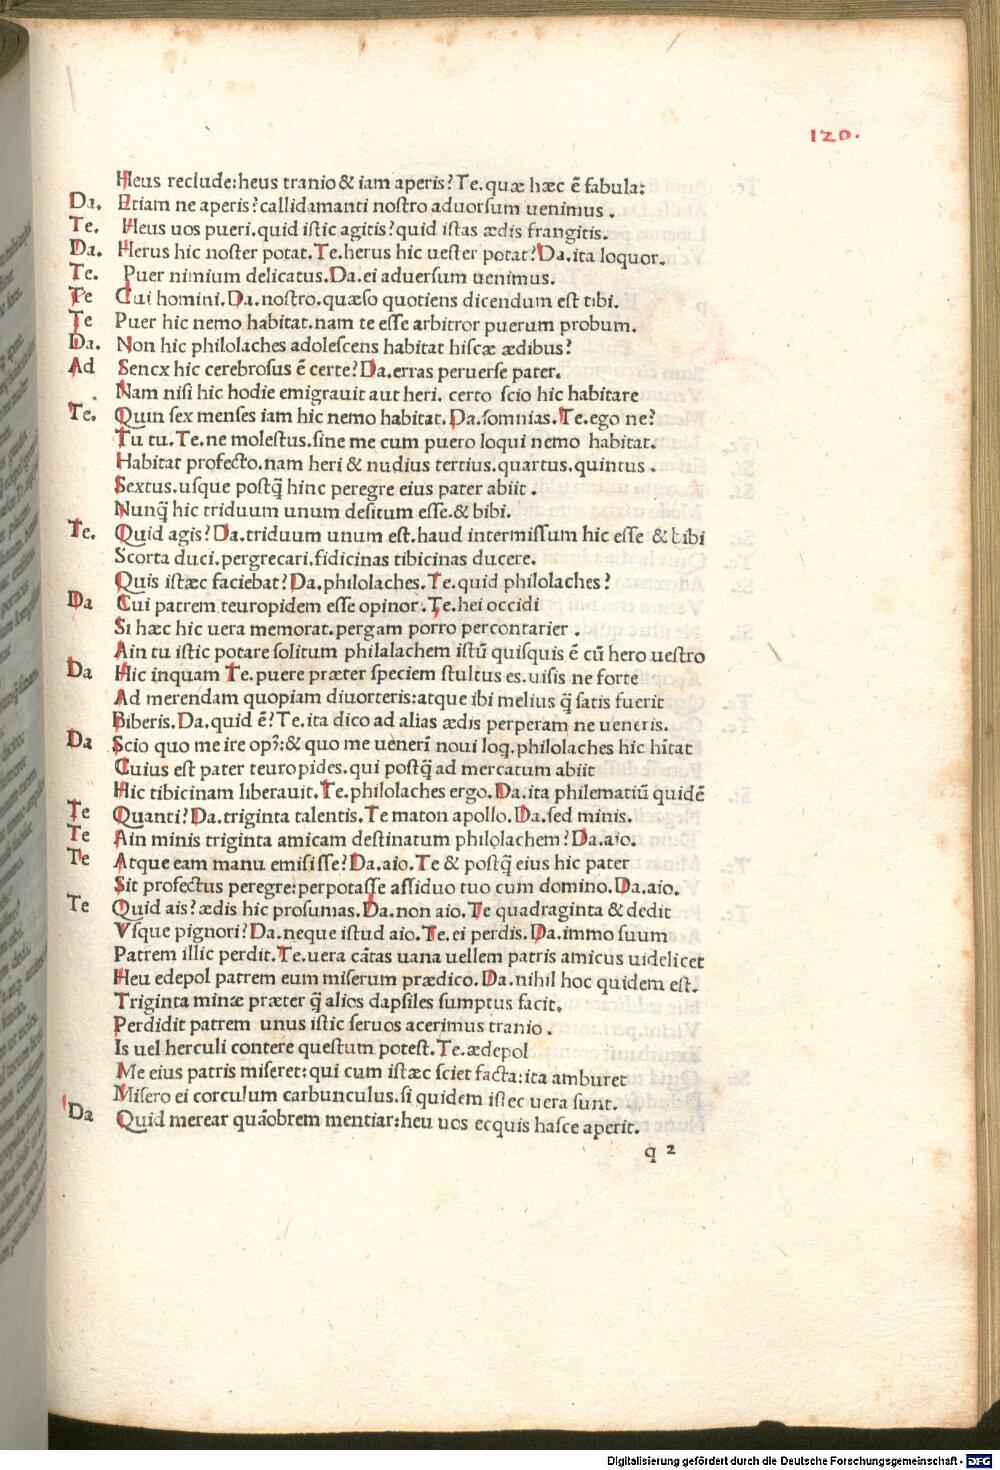 120.
Heus reclude:heus tranio & iam aperis?Te.quæ hæc ē fabula:
Da. Etiam ne aperis?callidamanti nostro aduorsum uenimus.
Te. Heus uos pueri.quid istic agitis?quid istas ædis frangitis.
Da. Herus hic noster potat.Te.herus hic uester potat?Da.ita loquor.
Te. Puer nimium delicatus.Da.ei aduersum uenimus.
Te Cui homini.Da.nostro.quæso quotiens dicendum est tibi.
Te Puer hic nemo habitat.nam te esse arbitror puerum probum.
Da. Non hic philolaches adolescens habitat hiscæ ædibus?
Ad Sencx hic cerebrosus ē certe?Da.erras peruerse pater.
Nam nisi hic hodie emigrauit aut heri. certo scio hic habitare
Te. Quin sex menses iam hic nemo habitat.Da.somnias.Te.ego ne?
Tu tu.Te.ne molestus.sine me cum puero loqui nemo habitat.
Habitat profecto.nam heri & nudius tertius.quartus.quintus.
Sextus.usque postq̄ hinc peregre eius pater abiit.
Nunq̄ hic triduum unum desitum esse.& bibi.
Te. Quid agis?Da.triduum unum est.haud intermissum hic esse & bibi
Scorta duci.pergrecari.fidicinas tibicinas ducere.
Quis istæc faciebat?Da.philolaches.Te.quid philolaches?
Da Cui patrem teuropidem esse opinor.Te.hei occidi
Si hæc hic uera memorat.pergam porro percontarier.
Ain tu istic potare solitum philalachem istū quisquis ē cū hero uestro
Da Hic inquam Te.puere præter speciem stultus es.uisis ne forte
Ad merendam quopiam diuorteris:atque ibi melius q̄ satis fuerit
Biberis.Da.quid ē?Te.ita dico ad alias ædis perperam ne ueneris.
Da Scio quo me ire opꝫ:& quo me uenerī noui loq.philolaches hic hītat
Cuius est pater teuropides.qui postq̄ ad mercatum abiit
Hic tibicinam liberauit.Te.philolaches ergo.Da.ita philematiū quidē
Te Quanti?Da.triginta talentis.Te maton apollo.Da.sed minis.
Te Ain minis triginta amicam destinatum philolachem?Da.aio.
Te Atque eam manu emisisse?Da.aio.Te & postq̄ eius hic pater
Sit profectus peregre:perpotasse assiduo tuo cum domino.Da.aio.
Te Quid ais?ædis hic prosumas.Da.non aio.Te quadraginta & dedit
Vsque pignori?Da.neque istud aio.Te.ei perdis.Da.immo suum
Patrem illic perdit.Te.uera cātas uana uellem patris amicus uidelicet
Heu edepol patrem eum miserum prædico.Da.nihil hoc quidem est.
Triginta minæ præter q̄ alios dapsiles sumptus facit.
Perdidit patrem unus istic seruos acerimus tranio.
Is uel herculi contere questum potest.Te.ædepol
Me eius patris miseret:qui cum istæc sciet facta:ita amburet
Misero ei corculum carbunculus.si quidem istec uera sunt.
Da Quid merear quāobrem mentiar:heu uos ecquis hasce aperit.
q 2
Digitalisierung gefördert durch die Deutsche Forschungsgemeinschaft - DFG